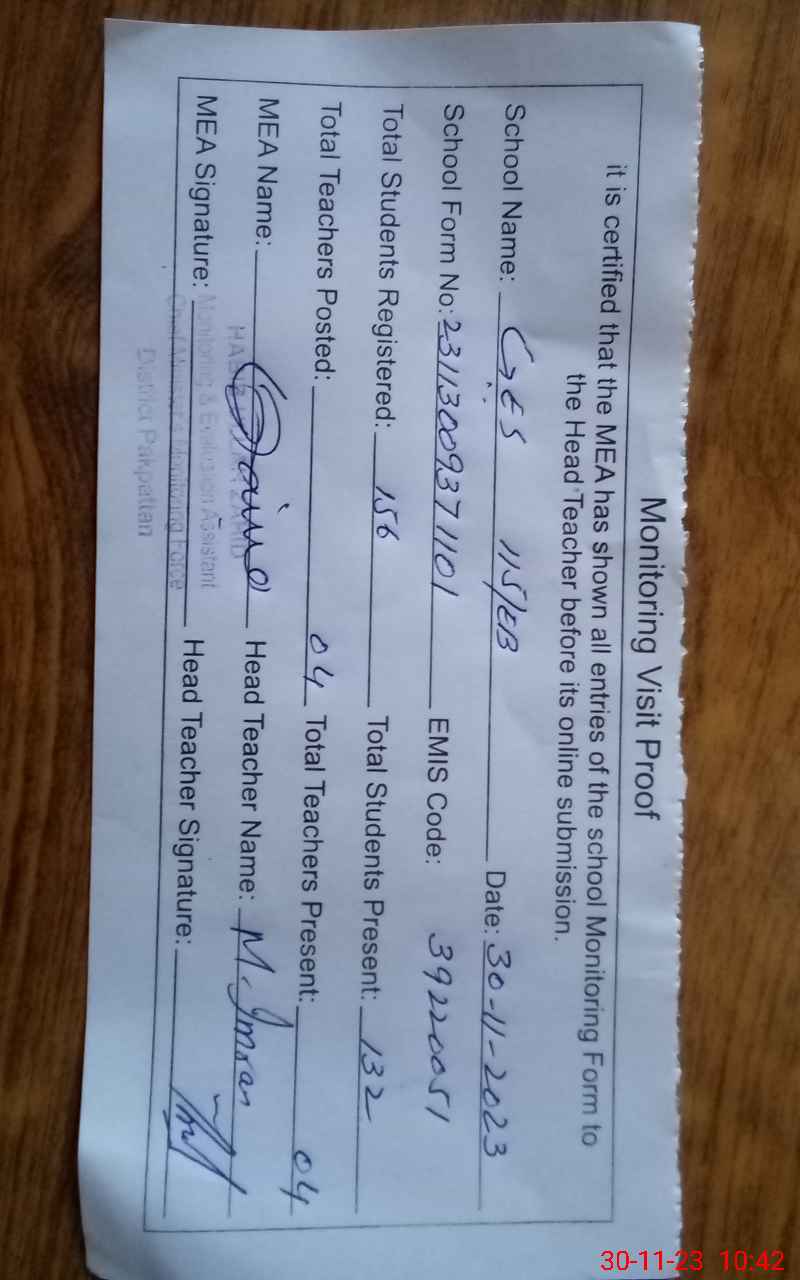 Monitoring Visit Proof
it is certified that the MEA has shown all entries of the school Monitoring Form to
the Head Teacher before its online submission.
School Name: GES 115/EB Date: 30-11-2023
School Form No: 23113009371101 EMIS Code: 39220051
Total Students Registered: 156 Total Students Present: 132
Total Teachers Posted: 04 Total Teachers Present: 04
MEA Name: Head Teacher Name: M. Imran
MEA Signature: Head Teacher Signature:
Monitoring & Evaluation Assistant
Chief Minister's Monitoring Force
District Pakpattan
30-11-23 10:42